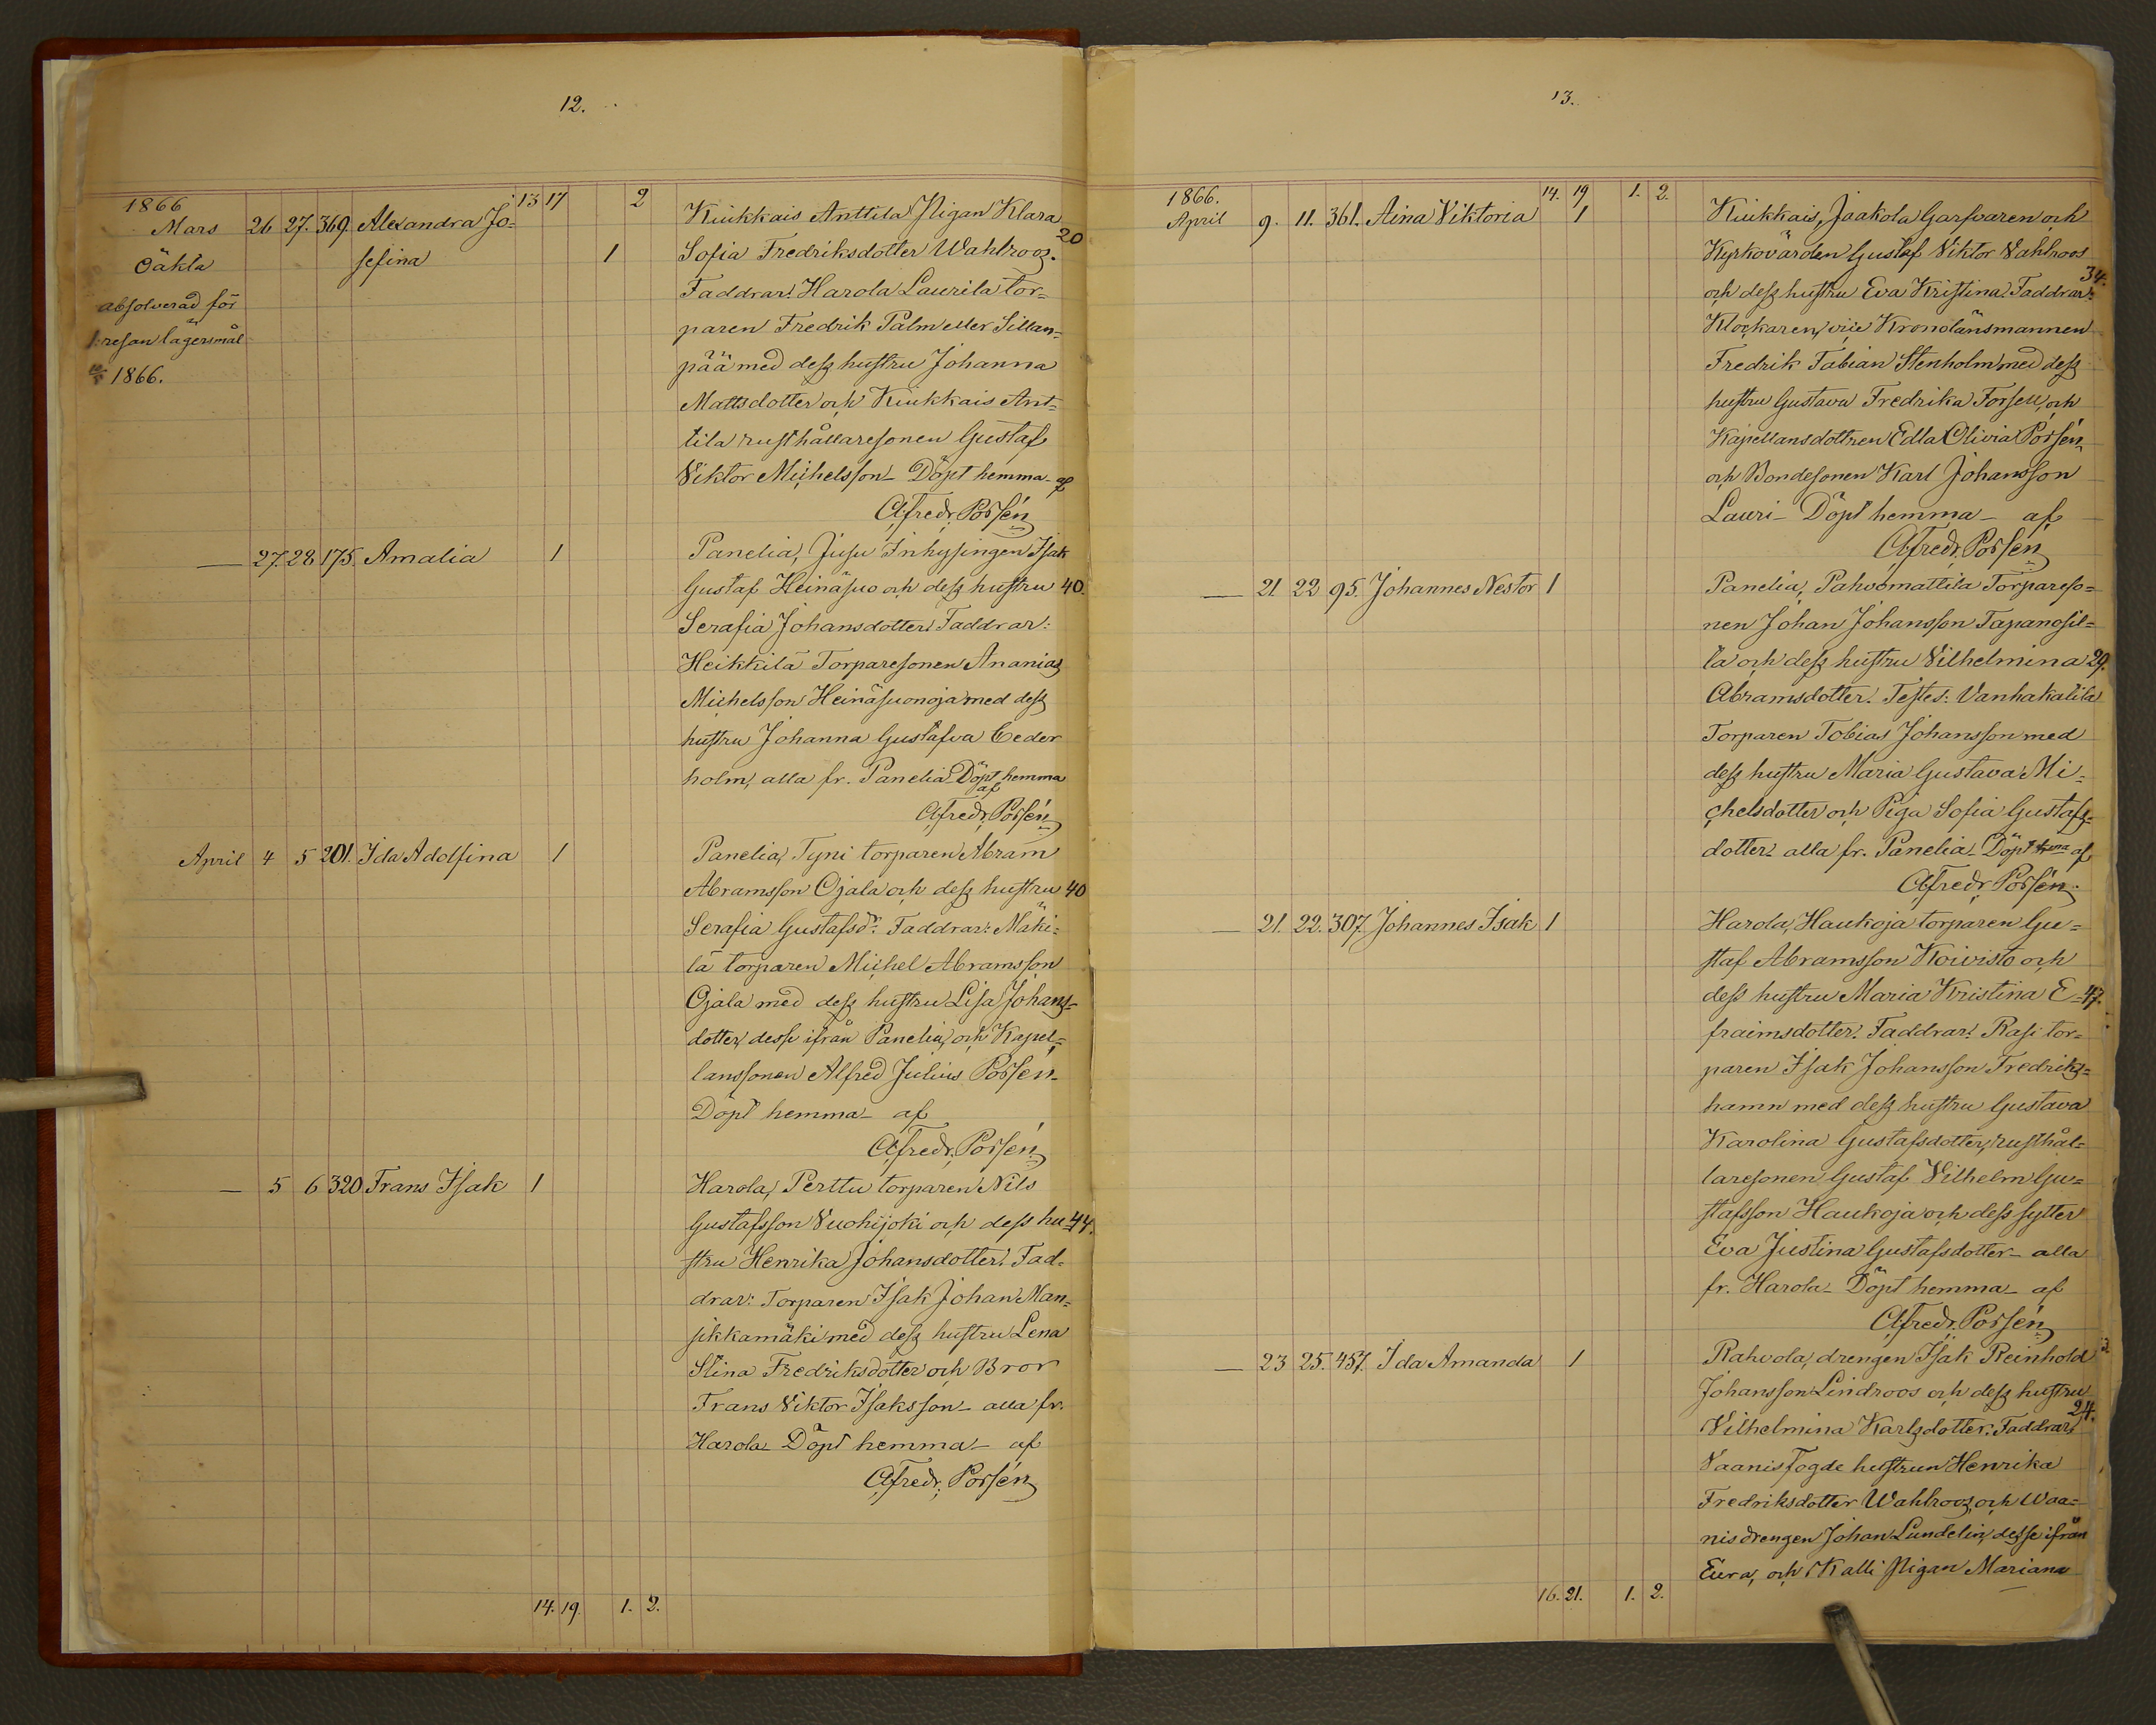 12.
1866 13 17 2
Mars 26 27. 369. Alexandra Jo= Kiukkais Anttila Pigan Klara 20
Oäkta sefina 1 Sofia Fredriksdotter Wahlroos.
absolverad för Faddrar: Harola Laurila tor=
1. resan lägersmål paren Fredrik Palm eller Sillan=
1866. pää med dess hustru Johanna
Mattsdotter och Kiukkais Ant=
tila rusthållaresonen Gustaf
Viktor Michelsson – Döpt hemma – af
Alfredr. Porsén
— 27. 28 175. Amalia 1 Panelia, Jusu Inhysingen Isak
Gustaf Heinäsuo och dess hustru 40.
Serafia Johansdotter. Faddrar:
Heikkilä Torparesonen Ananias
Michelsson Heinäsuonoja med dess
hustru Johanna Gustafva Ceder
holm, alla fr. Panelia – Döpt hemma
af
Alfredr. Porsén
April 4 5 201. Ida Adolfina 1 Panelia, Tyni torparen Abram
Abramsson Ojala och dess hustru 40
Serafia Gustafsdr. Faddrar: Mäki=
lä torparen Michel Abramsson
Ojala med dess hustru Lisa Johans=
dotter, desse ifrån Panelia, och Kapel=
lanssonen Alfred Julius Porsén –
Döpt hemma – af
Alfredr. Porsén
— 5 6 320 Frans Isak 1 Harola, Perttu torparen Nils
Gustafsson Vuohijoki och dess hu= 44.
stru Henrika Johansdotter. Fad=
drar: Torparen Isak Johan Man=
sikkamäki med dess hustru Lena
Stina Fredriksdotter och Bror
Frans Viktor Isaksson – alla fr.
Harola – Döpt hemma – af
Alfredr. Porsén
14. 19. 1. 2.
13.
1866. 14. 19 1. 2.
April 9. 11. 361. Aina Viktoria 1 Kiukkais, Jaakola Garfvaren och
Kyrkovärden Gustaf Viktor Vahlroos
och dess hustru Eva Kristina. Faddrar: 34.
Klockaren, vice Kronolänsmannen
Fredrik Fabian Stenholm med dess
hustru Gustava Fredrika Forsell, och
Kapellansdottren Edla Olivia Porsén,
och Bondesonen Karl Johansson
Lauri – Döpt hemma – af
Alfredr. Porsén
— 21 22 95. Johannes Nestor 1 Panelia, Pahvomattila Torpareso=
nen Johan Johansson Tapanosil=
la och dess hustru Vilhelmina 29.
Abramsdotter. Testes: Vanhakalila
Torparen Tobias Johansson med
dess hustru Maria Gustava Mi=
chelsdotter och Piga Sofia Gustafs=
dotter – alla fr. Panelia – Döpt hema af
Alfredr. Porsén.
— 21. 22. 307. Johannes Isak 1 Harola, Haukoja torparen Gu=
staf Abramsson Koivisto och
dess hustru Maria Kristina E= 47.
fraimsdotter. Faddrar: Rasi tor=
paren Isak Johansson Fredriks=
hamn med dess hustru Gustava
Karolina Gustafsdotter, rusthål=
laresonen Gustaf Vilhelm Gu=
stafsson Haukoja och dess syster
Eva Justina Gustafsdotter – alla
fr. Harola – Döpt hemma – af
Alfredr. Porsén
— 23 25. 457. Ida Amanda 1 Rahvola, drengen Isak Reinhold
Johansson Lindroos och dess hustru
Vilhelmina Karlsdotter. Faddrar: 24.
Vaanis Fogde hustrun Henrika
Fredriksdotter Wahlroos, och Waa=
nis drengen Johan Lundelin, desse ifrån
Eura, och Kalli Pigan Mariana
16. 21. 1. 2.